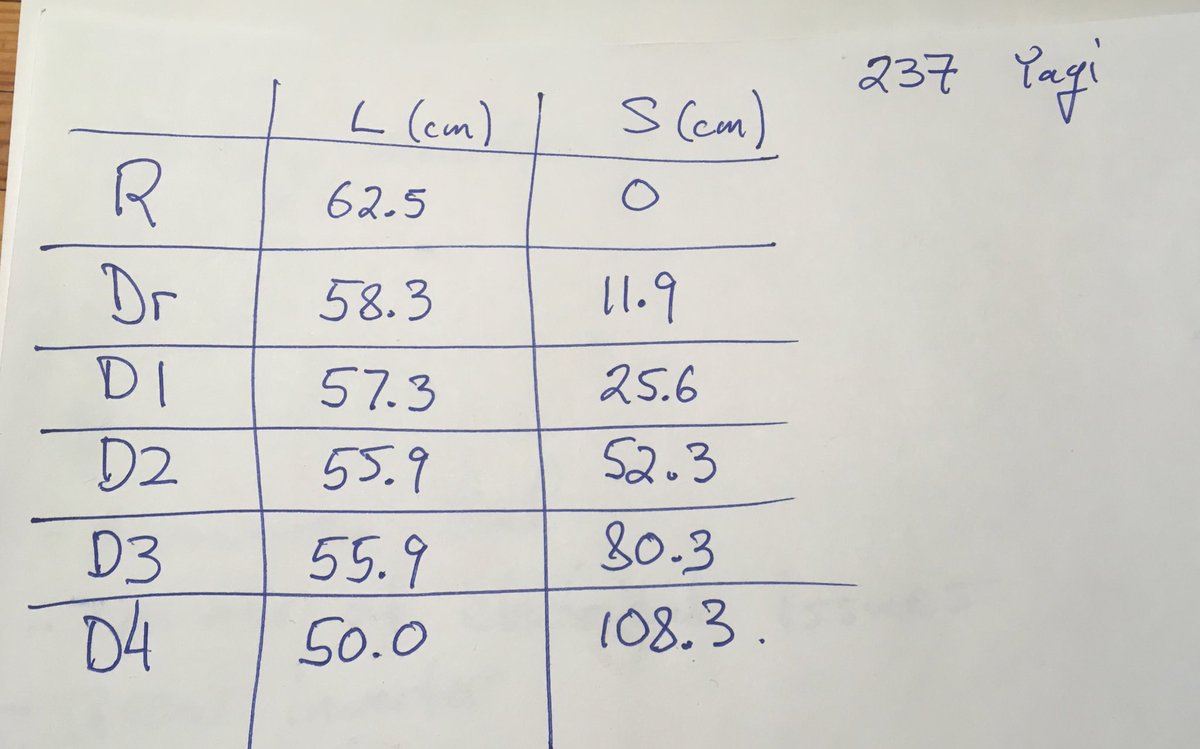 237 Yagi
L (cm) S (cm)
R 62.5 0
Dr 58.3 11.9
D1 57.3 25.6
D2 55.9 52.3
D3 55.9 80.3
D4 50.0 108.3.